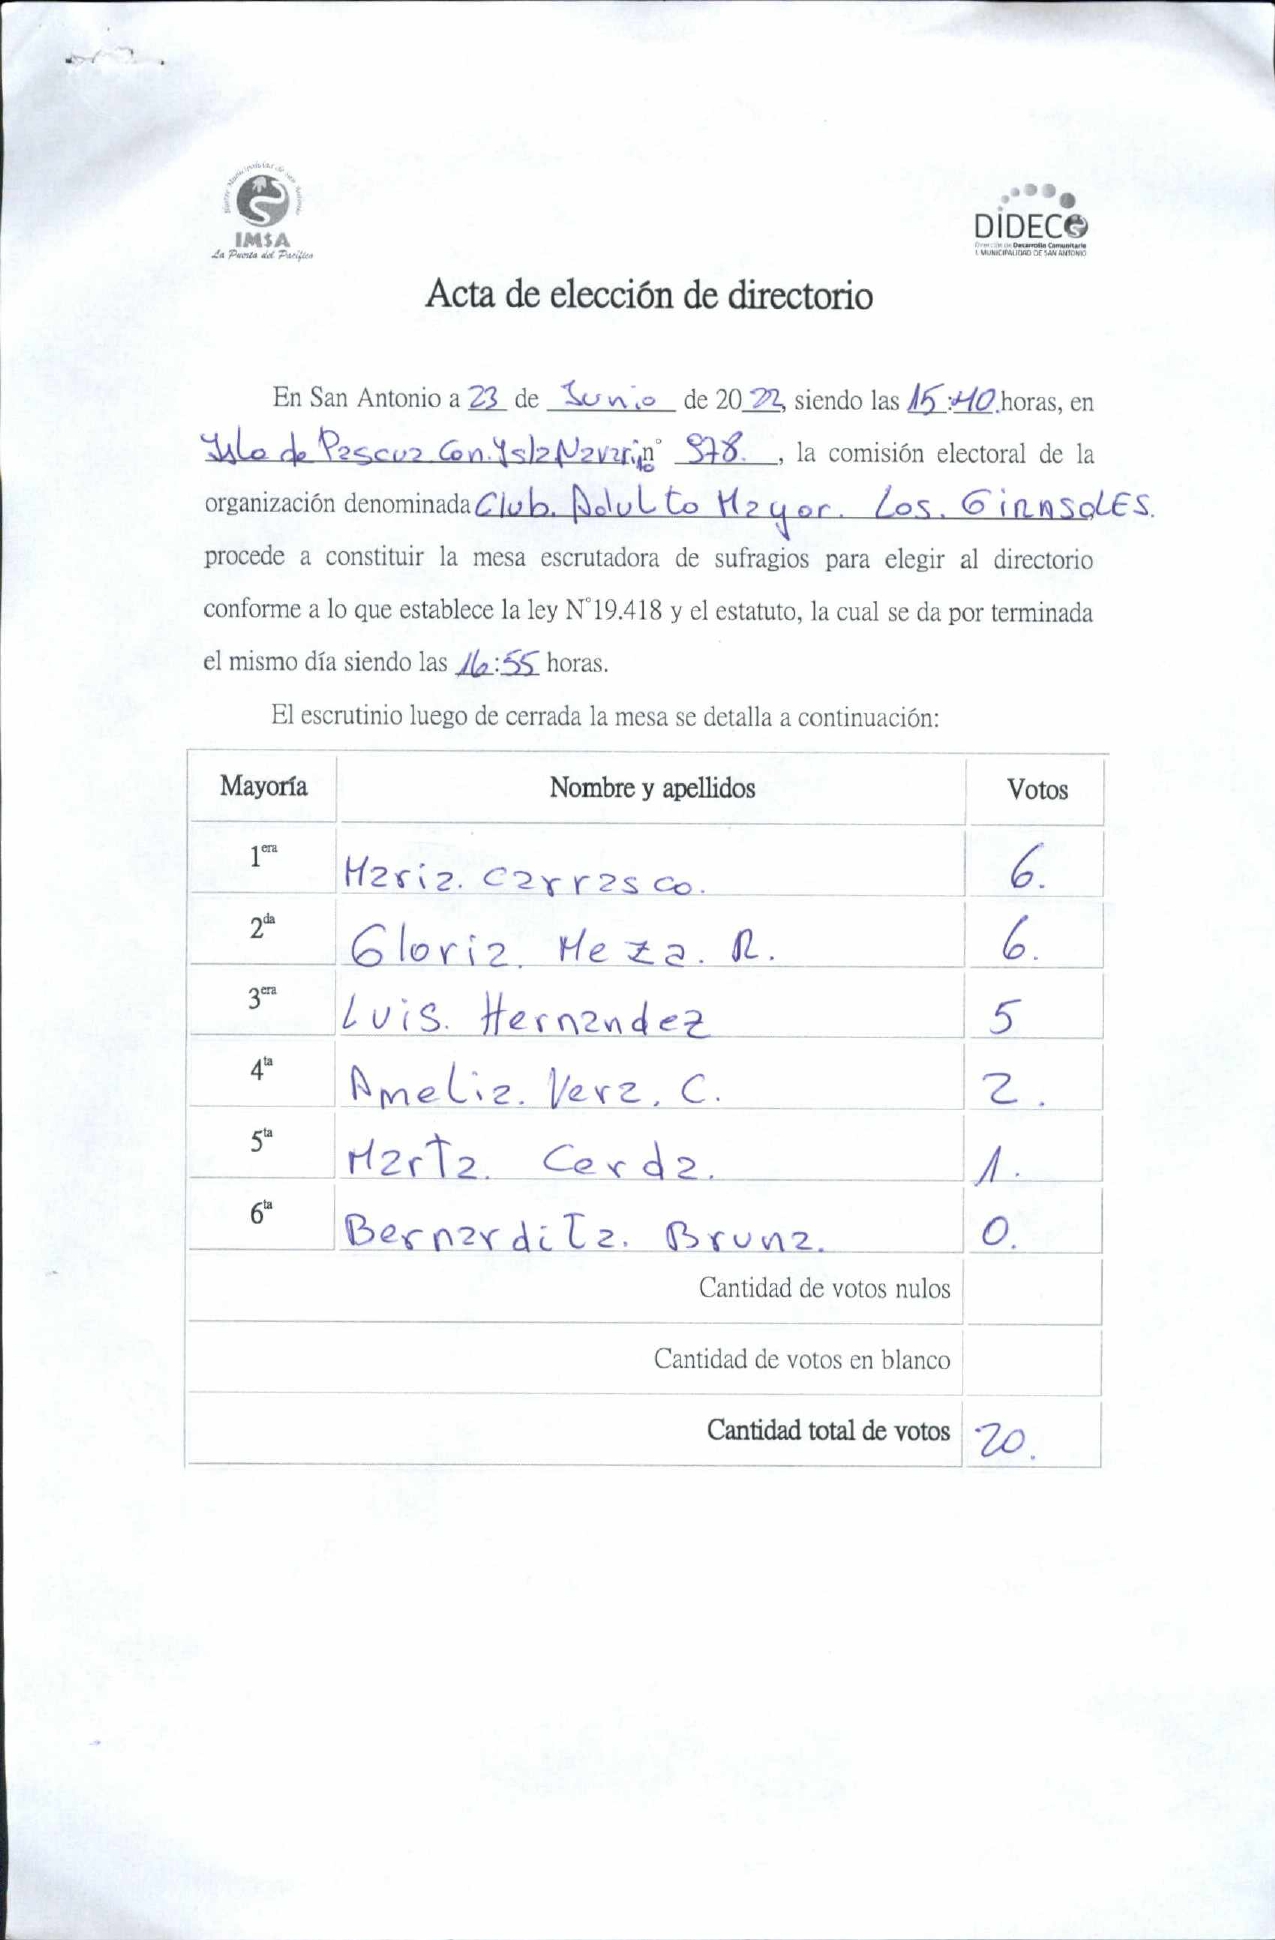 Ilustre Municipalidad de San Antonio
IMSA
La Puerta del Pacífico
DIDECO
Dirección de Desarrollo Comunitario
I. MUNICIPALIDAD DE SAN ANTONIO
Acta de elección de directorio
En San Antonio a 23 de Junio de 2022, siendo las 15:40. horas, en
Isla de Pascua Con. Ysla Navarino n° 978. , la comisión electoral de la
organización denominada Club. Adulto Mayor. Los. GiRASOLES.
procede a constituir la mesa escrutadora de sufragios para elegir al directorio
conforme a lo que establece la ley N°19.418 y el estatuto, la cual se da por terminada
el mismo día siendo las 16:55 horas.
El escrutinio luego de cerrada la mesa se detalla a continuación:
Mayoría Nombre y apellidos Votos
1era Maria. Carrasco. 6.
2da Gloria. Meza. R. 6.
3era Luis. Hernandez 5
4ta Amelia. Vera. C. 2.
5ta Marta. Cerda. 1.
6ta Bernardita. Bruna. 0.
Cantidad de votos nulos
Cantidad de votos en blanco
Cantidad total de votos 20.